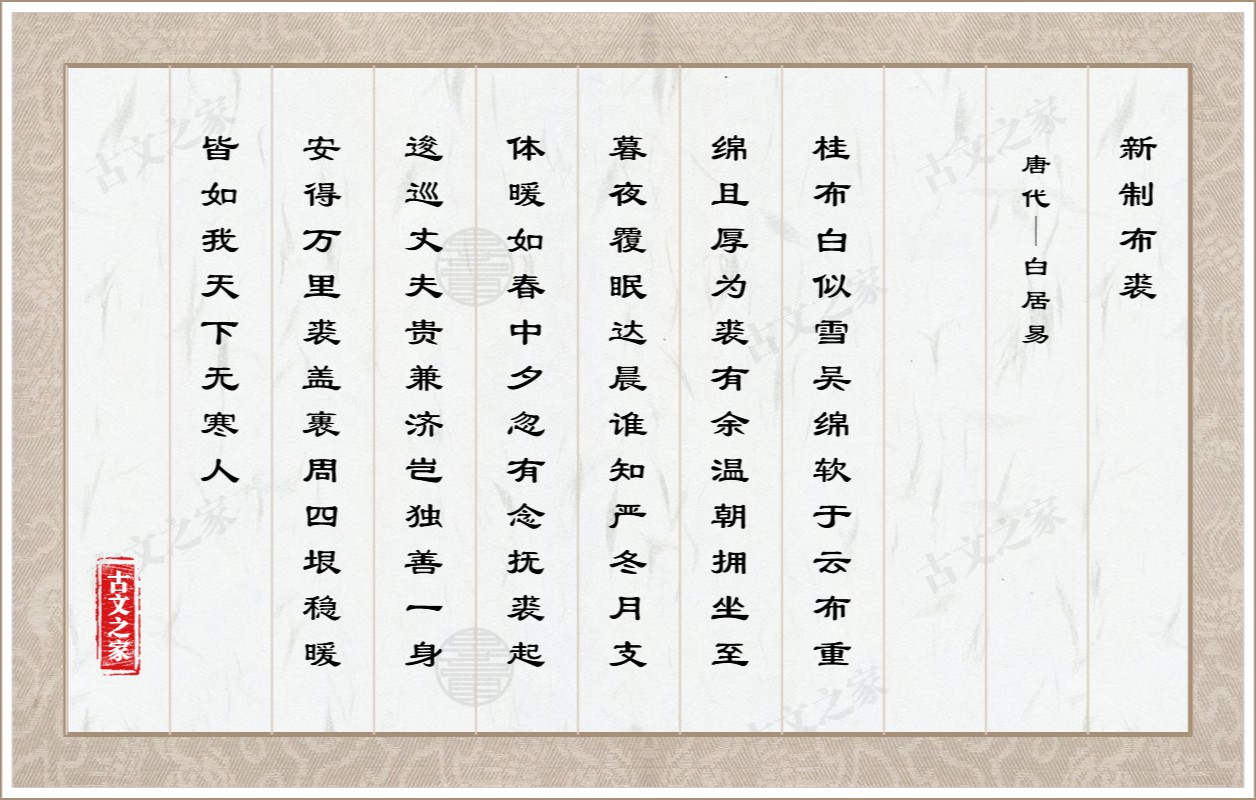 新制布裘
唐代—白居易
桂布白似雪吴绵软于云布重
绵且厚为裘有余温朝拥坐至
暮夜覆眠达晨谁知严冬月支
体暖如春中夕忽有念抚裘起
逡巡丈夫贵兼济岂独善一身
安得万里裘盖裹周四垠稳暖
皆如我天下无寒人
古文之家
古文之家
古文之家
古文之家
古文之家
古文之家
古文之家